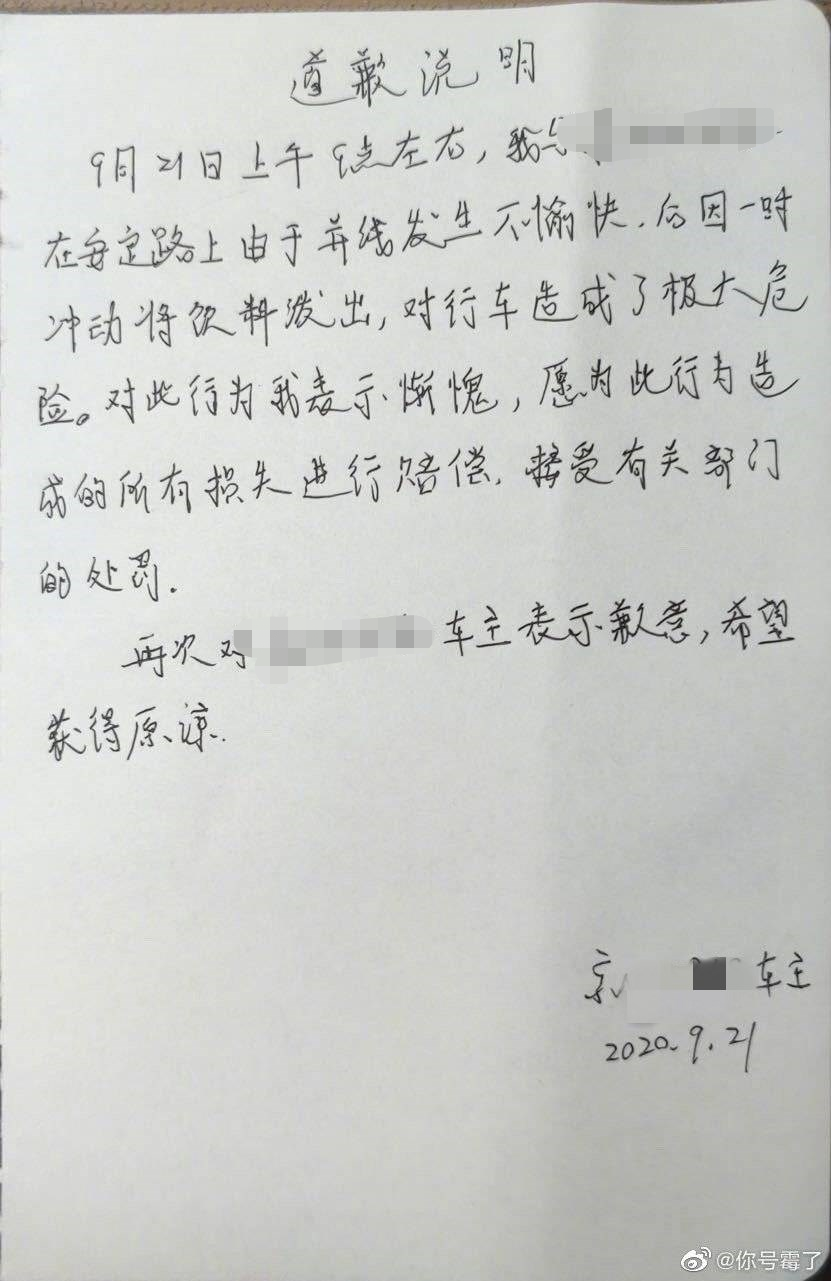 道歉说明
9月21日上午9点左右，我与
在安定路上由于并线发生不愉快.后因一时
冲动将饮料泼出，对行车造成了极大危
险。对此行为我表示惭愧，愿为此行为造
成的所有损失进行赔偿.接受有关部门
的处罚.
再次对 车主表示歉意，希望
获得原谅.
京 车主
2020.9.21
@你号霉了